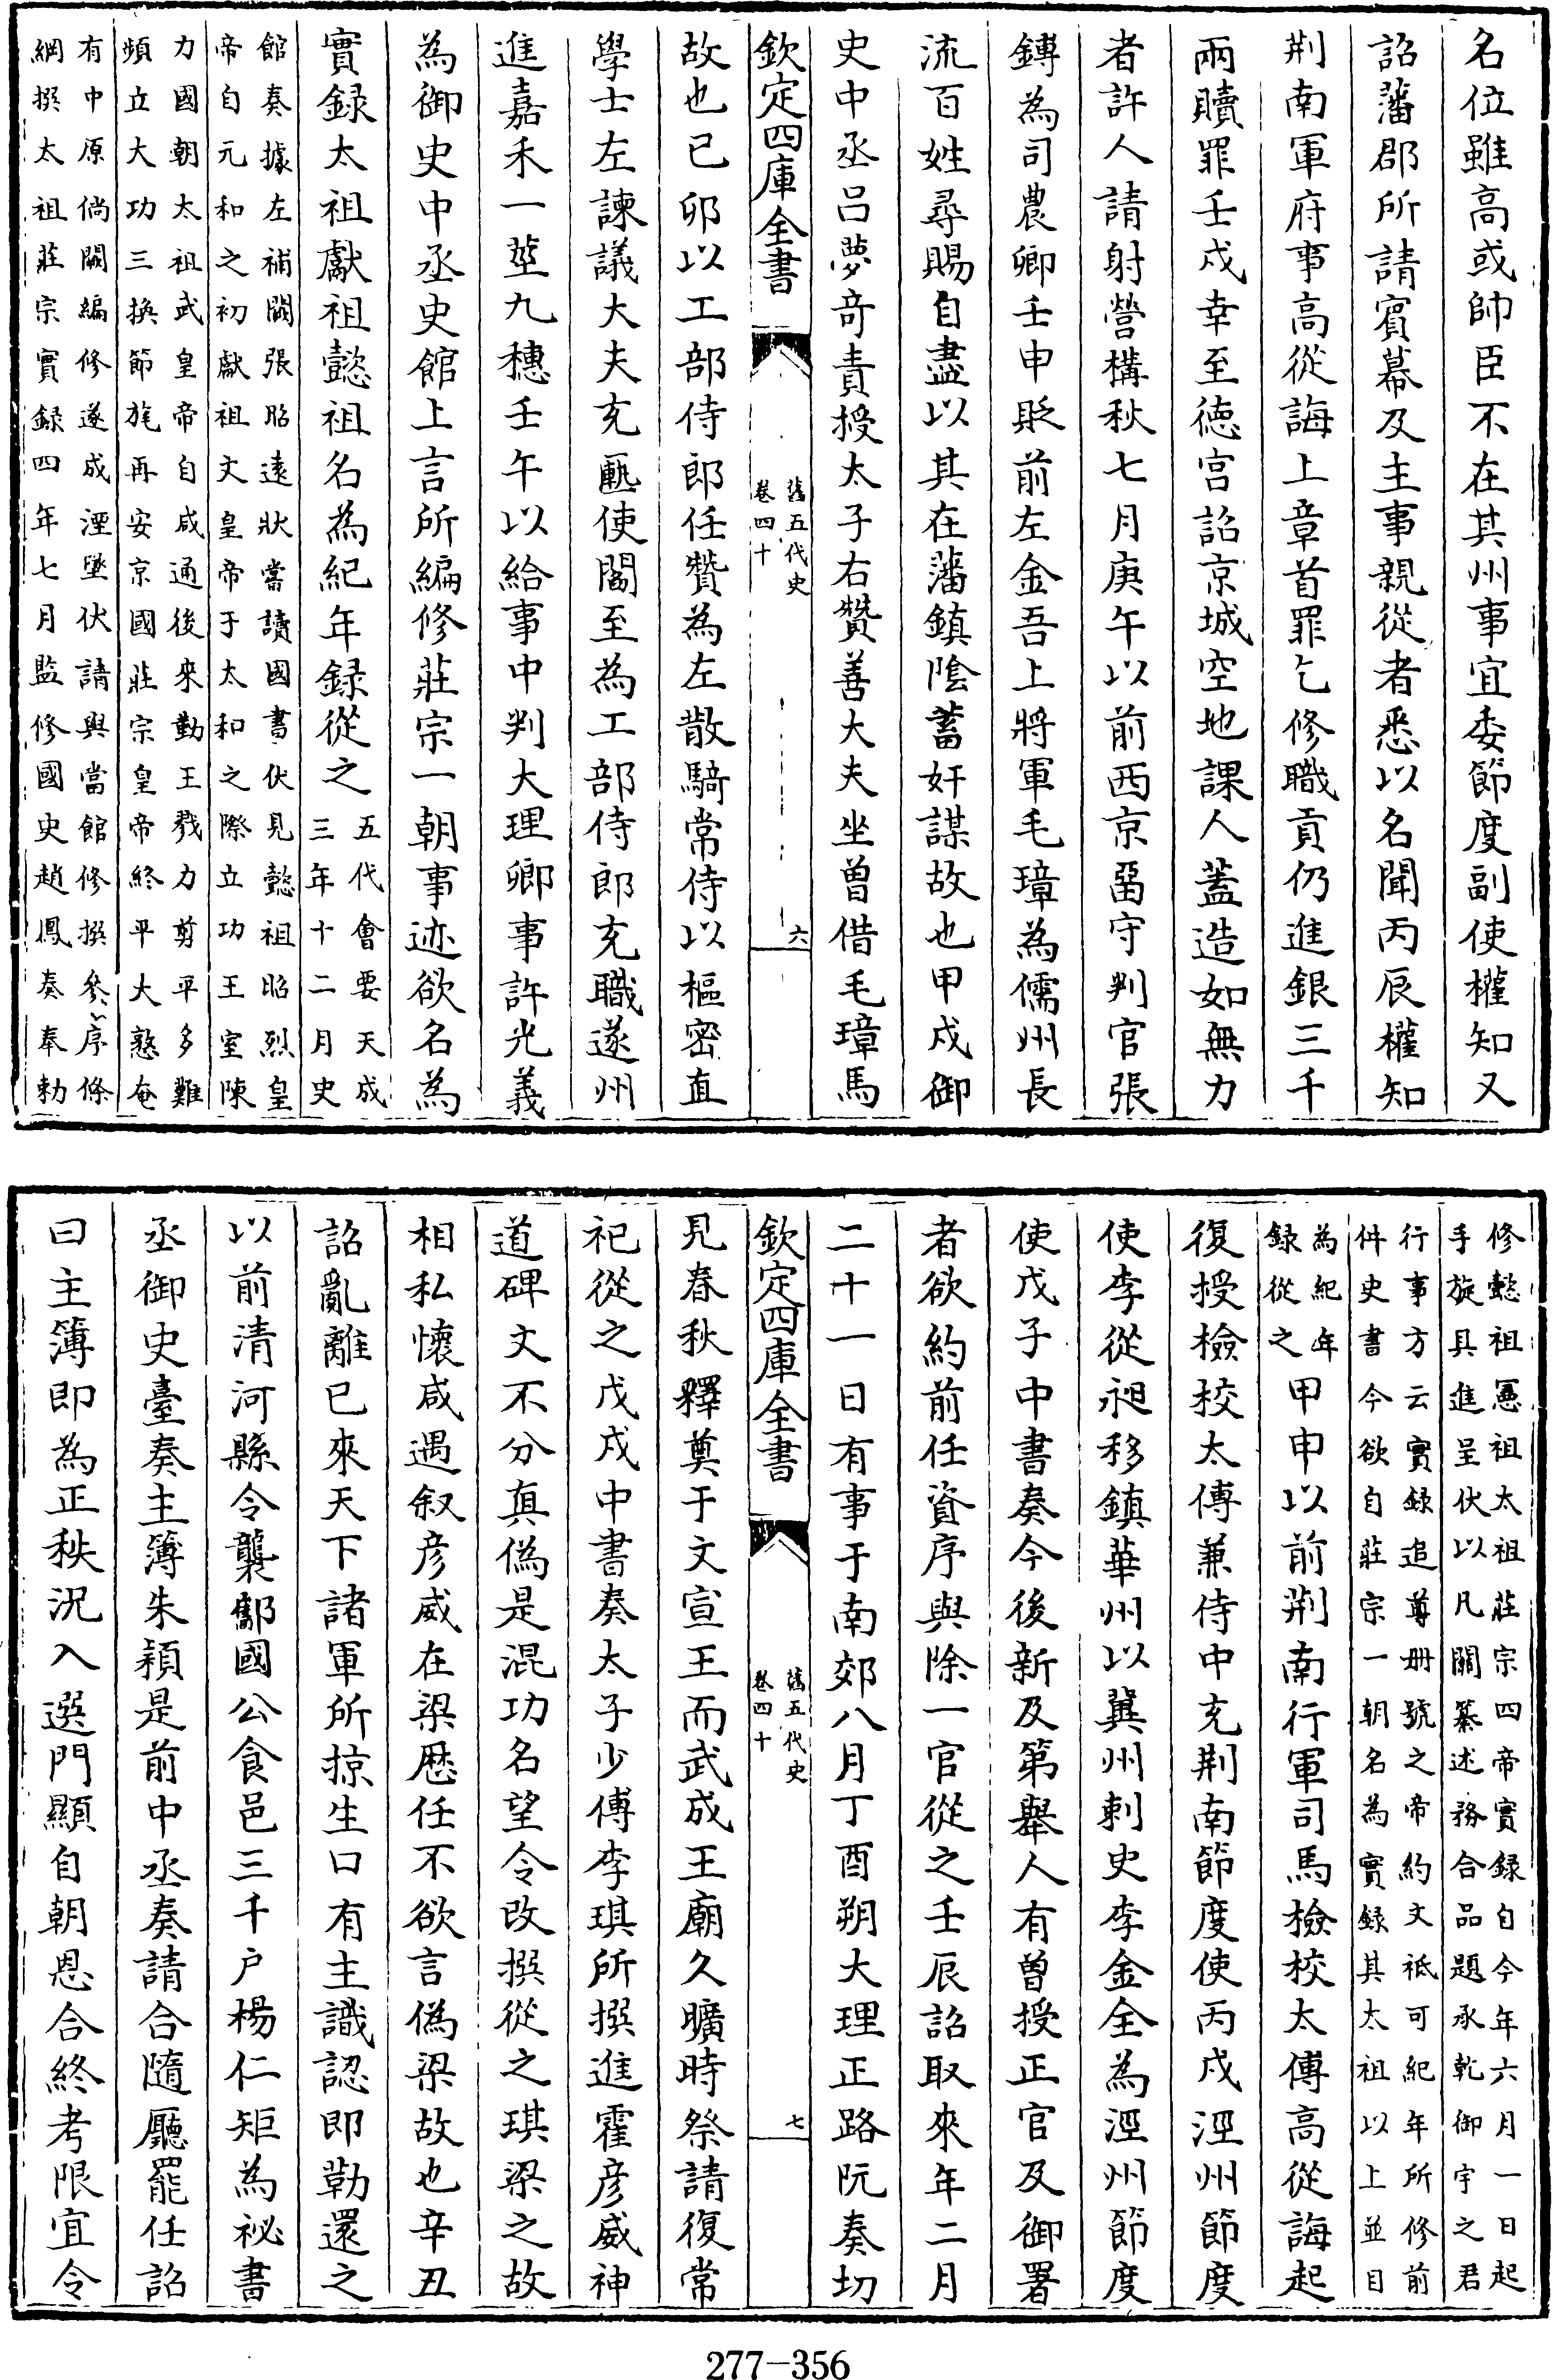 名位雖高或帥臣不在其州事宜委節度副使權知又
詔藩郡所請賓幕及主事親從者悉以名聞丙辰權知
荆南軍府事高從誨上章首罪乞修職貢仍進銀三千
兩贖罪壬戍幸至徳宫詔京城空地課人葢造如無力
者許人請射營構秋七月庚午以前西京畱守判官張
鎛為司農卿壬申貶前左金吾上將軍毛璋為儒州長
流百姓尋賜自盡以其在藩鎮陰蓄奸謀故也甲戍御
史中丞吕夢竒責授太子右贊善大夫坐曽借毛璋馬
欽定四庫全書
舊五代史
卷四十
六
故也已卯以工部侍郎任贊為左散騎常侍以樞密直
學士左諫議大夫充匭使閻至為工部侍郎充職遂州
進嘉禾一莖九穗壬午以給事中判大理卿事許光義
為御史中丞史館上言所編修莊宗一朝事迹欲名為
實録太祖獻祖懿祖名為紀年録從之
五代會要天成
三年十二月史
館奏據左補闕張昭逺狀嘗讀國書伏見懿祖昭烈皇
帝自元和之初獻祖文皇帝于太和之際立功王室陳
力國朝太祖武皇帝自咸通後來勤王戮力剪平多難
頻立大功三換節旄再安京國莊宗皇帝終平大憝奄
有中原倘闕編修遂成湮墜伏請與當館修撰參序條
綱撰太祖莊宗實録四年七月監修國史趙鳳奏奉勅
修懿祖憲祖太祖莊宗四帝實録自今年六月一日起
手旋具進呈伏以凡關纂述務合品題承乾御宇之君
行事方云實録追尊册號之帝約文祗可紀年所修前
件史書今欲自莊宗一朝名為實録其太祖以上並目
為紀年
録從之
甲申以前荆南行軍司馬檢校太傅高從誨起
復授檢校太傅兼侍中充荆南節度使丙戍涇州節度
使李從昶移鎮華州以冀州刺史李金全為涇州節度
使戊子中書奏今後新及第舉人有曽授正官及御署
者欲約前任資序與除一官從之壬辰詔取來年二月
二十一日有事于南郊八月丁酉朔大理正路阮奏切
欽定四庫全書
舊五代史
卷四十
七
見春秋釋奠于文宣王而武成王廟久曠時祭請復常
祀從之戊戍中書奏太子少傅李琪所撰進霍彦威神
道碑文不分真偽是混功名望令改撰從之琪梁之故
相私懷感遇叙彦威在梁歴任不欲言偽梁故也辛丑
詔亂離已來天下諸軍所掠生口有主識認即勒還之
以前清河縣令襲酅國公食邑三千户楊仁矩為祕書
丞御史臺奏主簿朱穎是前中丞奏請合隨廳罷任詔
曰主簿即為正秩況入選門顯自朝恩合終考限宜令
277-356